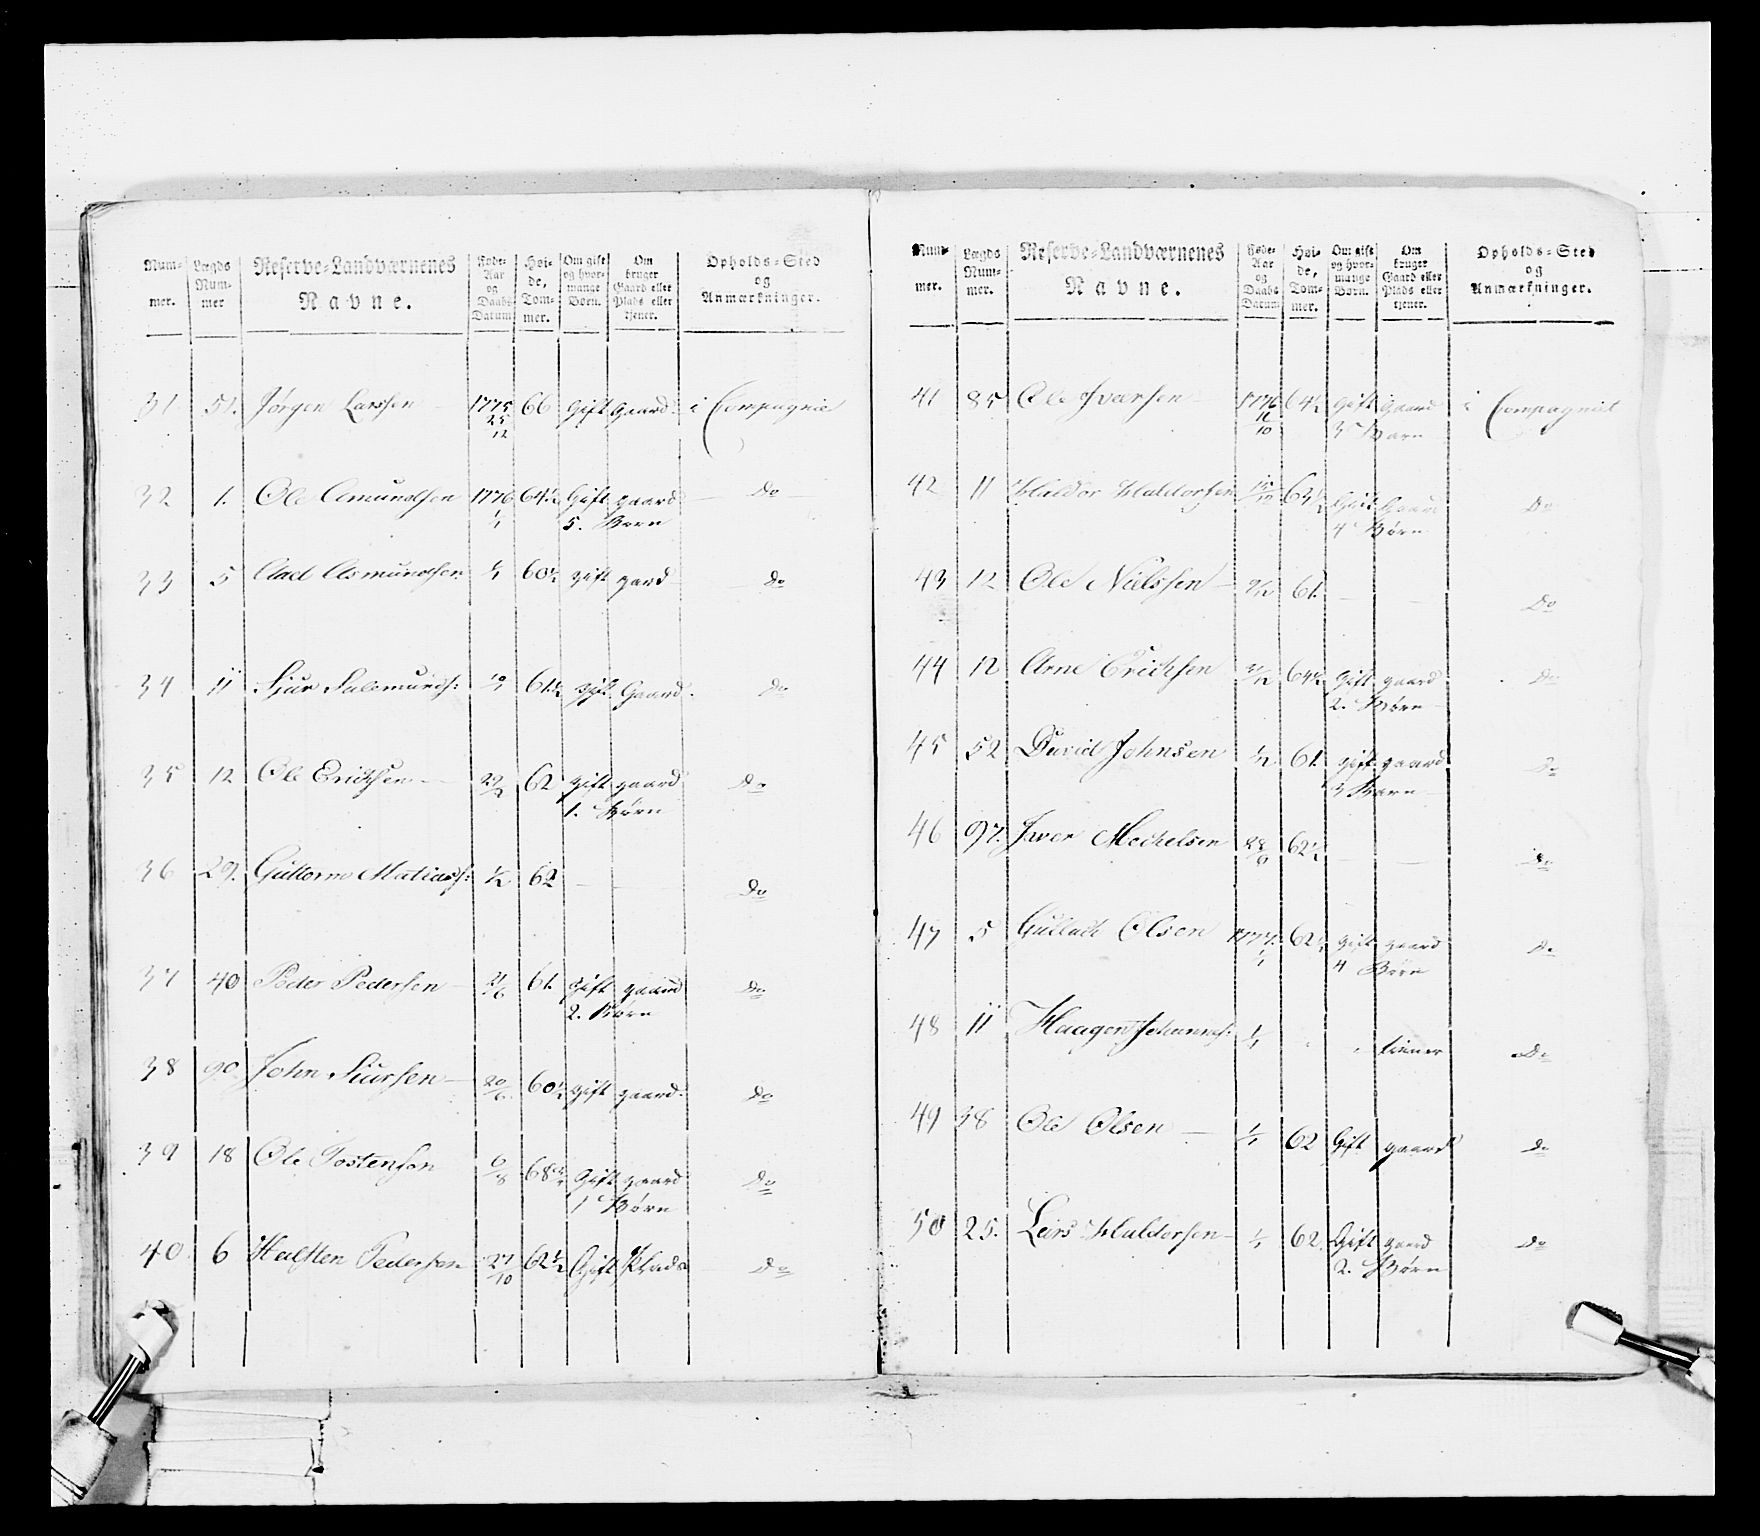 Num-mer. Lægds Num-mer Reserve-Landværnenes Navne. Føde-Aar og Daabs Datum Høi-de, Tom-mer. Om gift og hvor-mange Børn. Om bruger Gaard eller Plads eller tjener. Opholds-Sted og Anmærkninger.
31 51. Jørgen Larssen 1775 25/12 66 Gift Gaard. i Compagnie
32 1. Ole Amundsen 1776 1/1 64½ Gift gaard Do
5. Børn
33 5 Aad Asmundsen 1/1 60½ gift gard Do
34 11 Sjur Salemunds: 61½ gift Gaard. Do
35 12 Ole Erichsen 62 gift gaard Do
1. Børn
36 29. Guttorm Matias: 62 Do
37 40 Peder Pedersen 61. Gift gaard Do
2. Børn
38 90 John Siursen 20/6 60½ gift gaard. Do
39 18 Ole Tostensen 6/8 68 Gift gaard Do
1 Børn
40. 6 Halsten Pedersen 27/10 62½ Gift Plads Do
Num-mer. Lægds Num-mer. Reserve-Landværnenes Navne. Føde-Aar og Daabs Datum Høi-de, Tom-mer. Om gift og hvor-mange Børn. Om bruger Gaard eller Plads eller tjener. Opholds-Sted og Anmærkninger.
41 85 Ole Iversen 1776 16/10 64½ Gift Gaard i Compagniet
3 Børn
42 11 Haldor Haldorsen 63½ Gift Gaard Do
4 Børn
43 12 Ole Nielssen 61. Do
44 12 Arne Erichsen 64½ Gift gaard Do
2. Børn
45 52 David Johnsen 61. gift gaard Do
3 Børn
46 97. Iver Mechelsen 62½ Do
47 5 Gullach Olsen 1777. 1/1 62½ gift gaard Do
4 Børn
48 11 Haagen Johannes: 1/1 tiener Do
49 38 Ole Olsen 1/1 62 Gift gaard Do
50 25. Lars Haldorsen 1/1 62. Gift gaard Do
2. Børn